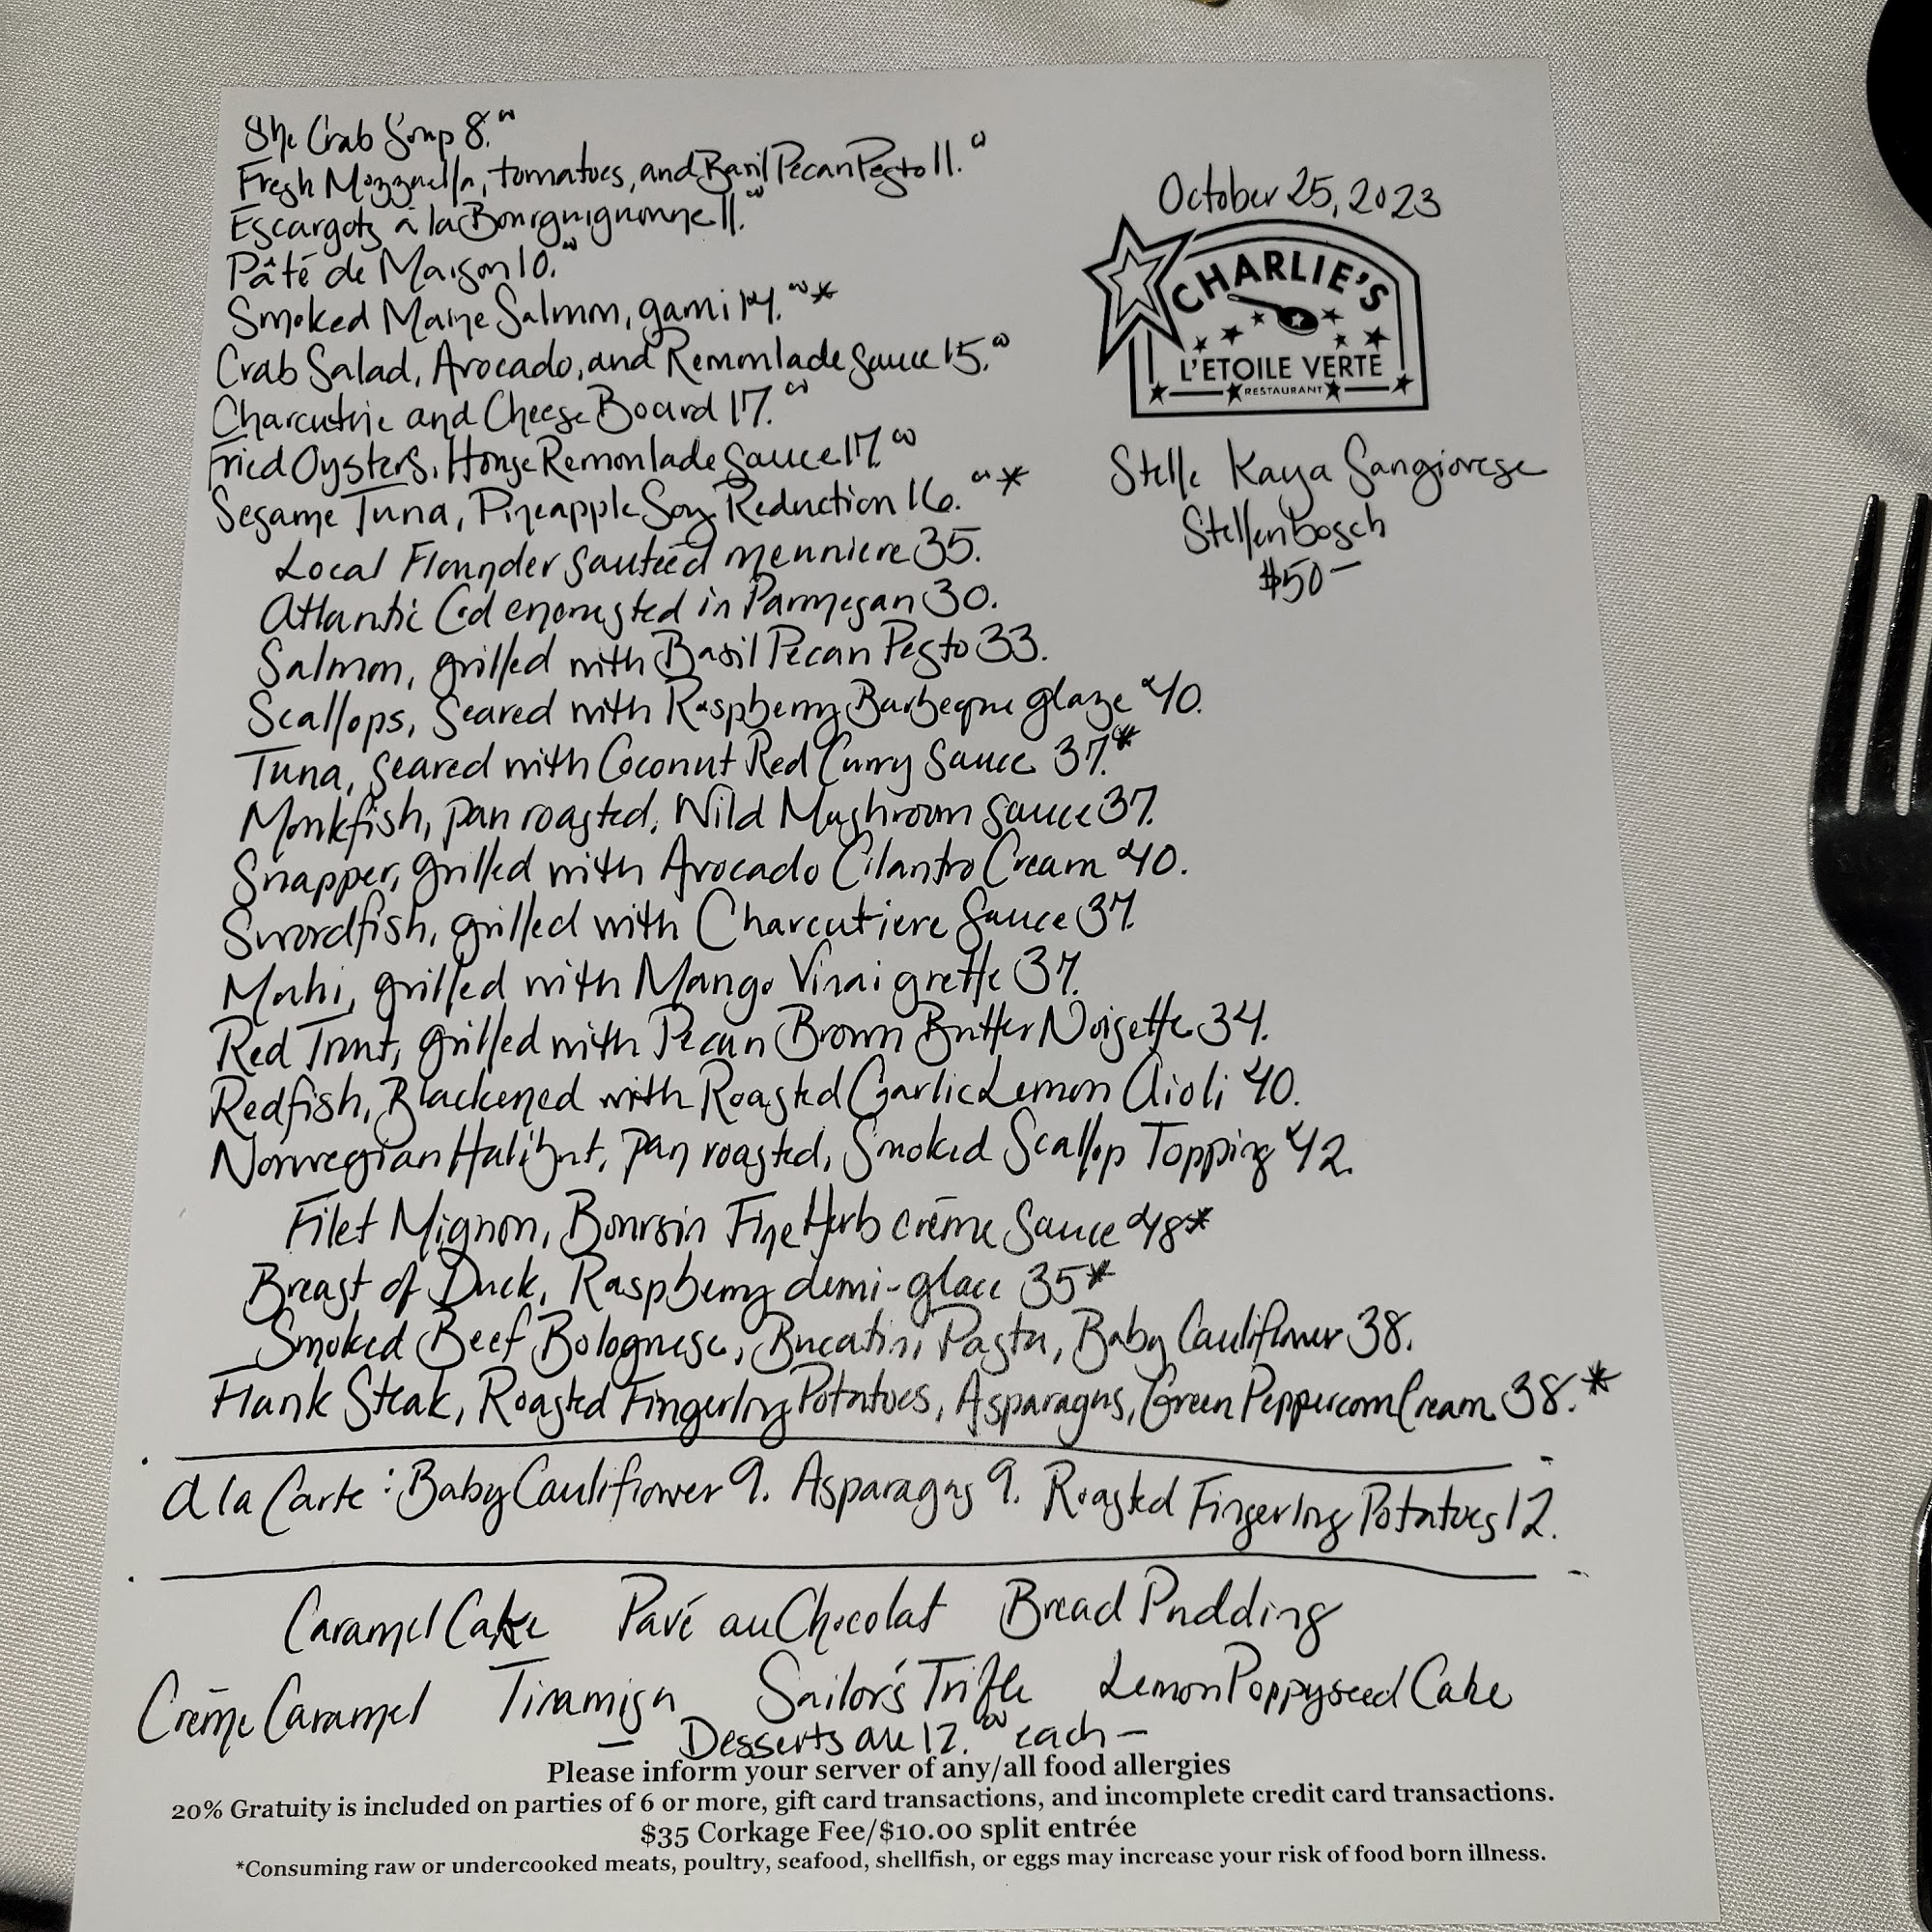 She Crab Soup 8.00
Fresh Mozzarella, tomatoes, and Basil Pecan Pesto 11.00
Escargots à la Bourguignonne 11.00
Pâté de Maison 10.00
Smoked Maine Salmon, garni 14.00*
Crab Salad, Avocado, and Remoulade Sauce 15.00
Charcuterie and Cheese Board 17.00
Fried Oysters, House Remoulade Sauce 17.00
Sesame Tuna, Pineapple Soy Reduction 16.00*
Local Flounder sauteéd meuniere 35.
Atlantic Cod encrusted in Parmesan 30.
Salmon, grilled with Basil Pecan Pesto 33.
Scallops, Seared with Raspberry Barbeque glaze 40.
Tuna, Seared with Coconut Red Curry Sauce 37.*
Monkfish, pan roasted, Wild Mushroom Sauce 37.
Snapper, grilled with Avocado Cilantro Cream 40.
Swordfish, grilled with Charcutiere Sauce 37.
Mahi, grilled with Mango Vinaigrette 37.
Red Trout, grilled with Pecan Brown Butter Noisette 34.
Redfish, Blackened with Roasted Garlic Lemon Aioli 40.
Norwegian Halibut, pan roasted, Smoked Scallop Topping 42.
Filet Mignon, Boursin Fine Herb crème Sauce 48*
Breast of Duck, Raspberry demi-glace 35*
Smoked Beef Bolognese, Bucatini Pasta, Baby Cauliflower 38.
Flank Steak, Roasted Fingerling Potatoes, Asparagus, Green Peppercorn Cream 38.*
October 25, 2023
CHARLIE'S
L'ETOILE VERTE
RESTAURANT
Stelle Kaya Sangiovese
Stellenbosch
$50—
A la Carte: Baby Cauliflower 9. Asparagus 9. Roasted Fingerling Potatoes 12.
Caramel Cake Pavé au Chocolat Bread Pudding
Crème Caramel Tiramisu Sailor's Trifle Lemon Poppyseed Cake
— Desserts are 12.00 each —
Please inform your server of any/all food allergies
20% Gratuity is included on parties of 6 or more, gift card transactions, and incomplete credit card transactions.
$35 Corkage Fee/$10.00 split entrée
*Consuming raw or undercooked meats, poultry, seafood, shellfish, or eggs may increase your risk of food born illness.